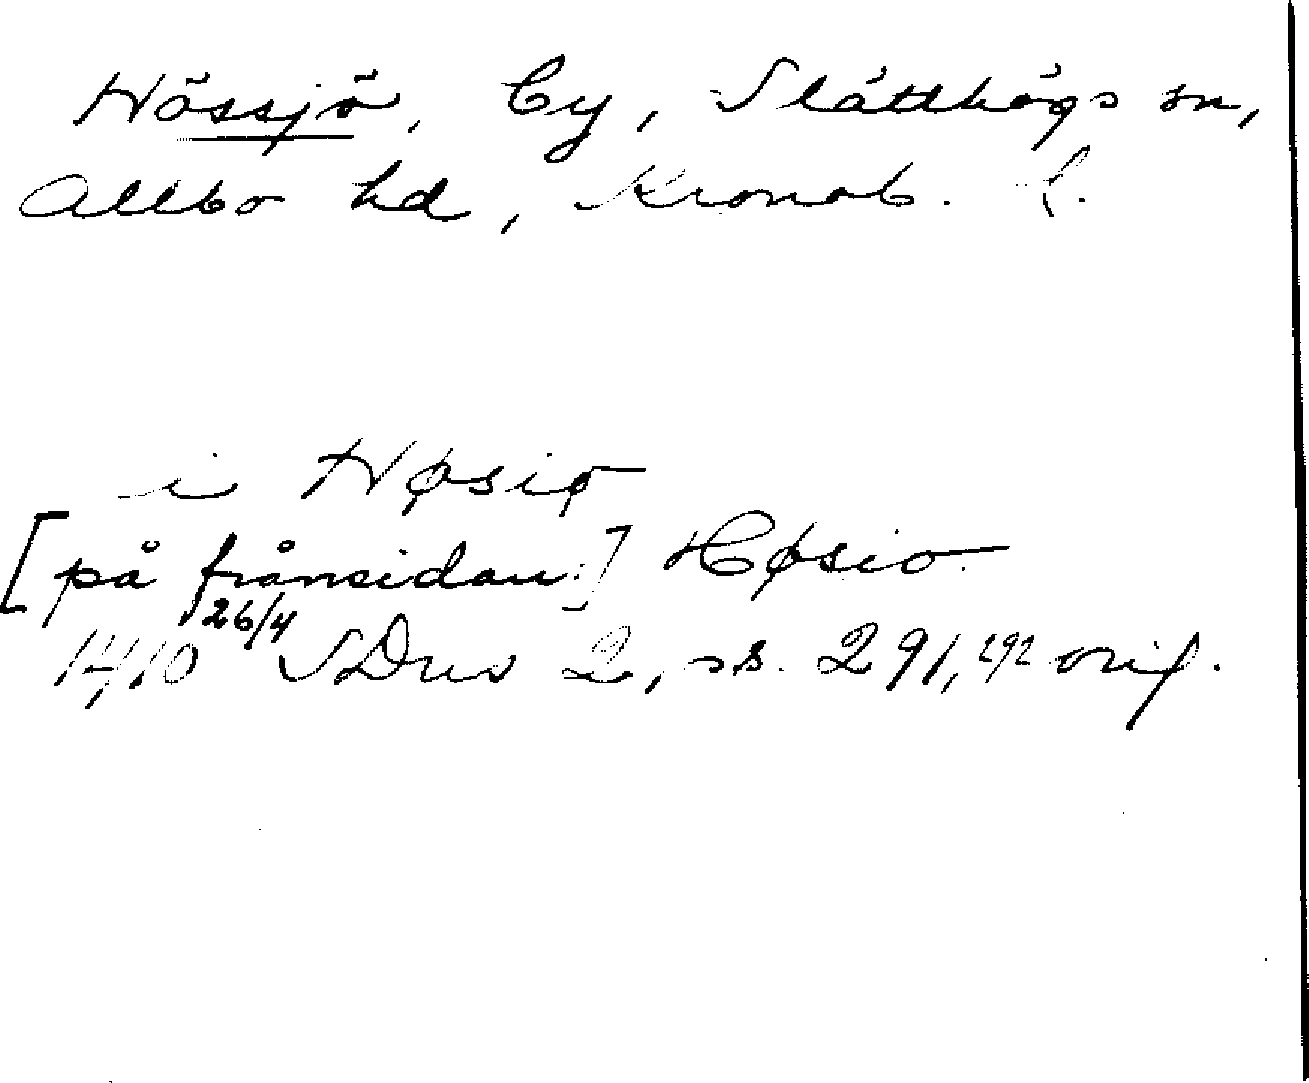 Hössjö, by, Slätthögs sn,
Allbo hd, Kronob. l.
i Høsiø
[på frånsidan:] Høsio
1410 26/4 SDns 2, ss. 291, 292 orig.